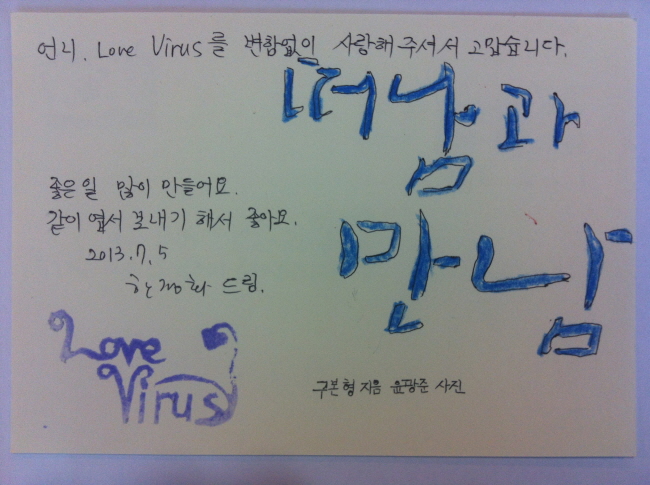 언니. Love Virus를 변함없이 사랑해 주셔서 고맙습니다.
떠남과
만남
좋은일 많이 만들어요.
같이 엽서 보내기 해서 좋아요.
2013.7.5
한정화 드림.
Love
Virus
구본형 지음 윤광준 사진